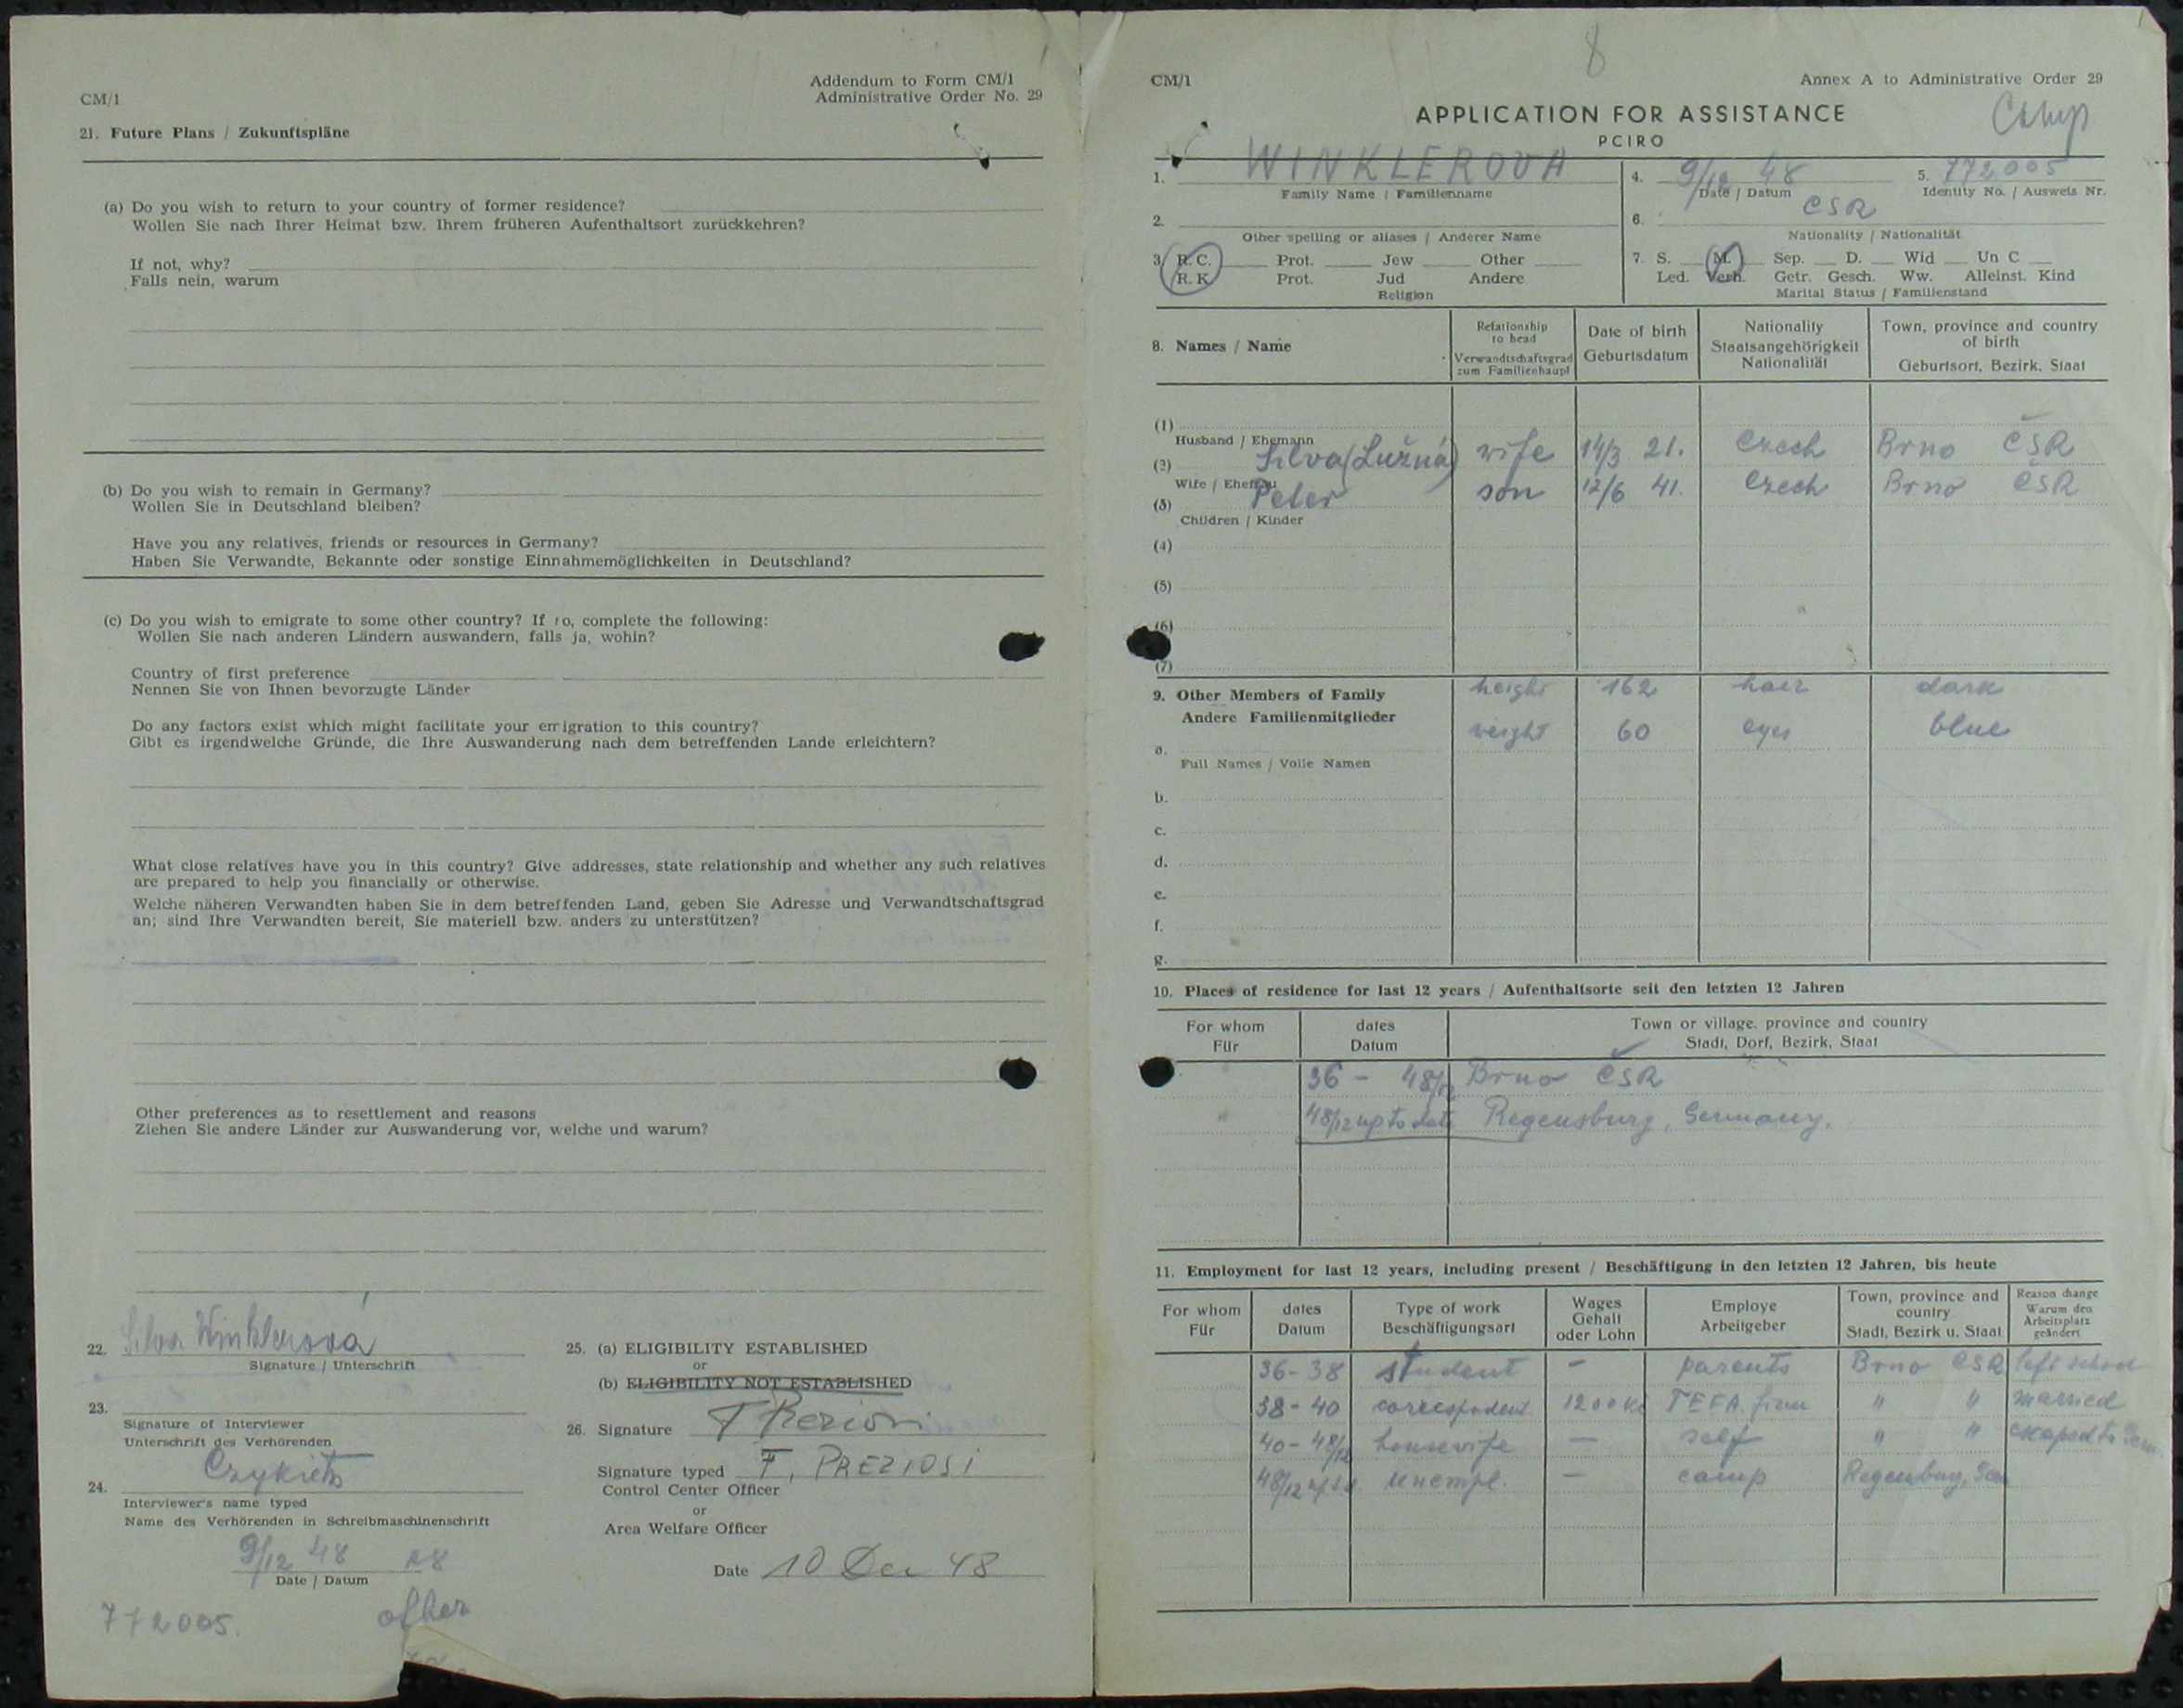 CM/1
Addendum to Form CM/1
Administrative Order No. 29
21. Future Plans / Zukunftspläne
(a) Do you wish to return to your country of former residence?
Wollen Sie nach Ihrer Heimat bzw. Ihrem früheren Aufenthaltsort zurückkehren?
If not, why?
Falls nein, warum
(b) Do you wish to remain in Germany?
Wollen Sie in Deutschland bleiben?
Have you any relatives, friends or resources in Germany?
Haben Sie Verwandte, Bekannte oder sonstige Einnahmemöglichkeiten in Deutschland?
(c) Do you wish to emigrate to some other country? If so, complete the following:
Wollen Sie nach anderen Ländern auswandern, falls ja, wohin?
Country of first preference
Nennen Sie von Ihnen bevorzugte Länder
Do any factors exist which might facilitate your emigration to this country?
Gibt es irgendwelche Gründe, die Ihre Auswanderung nach dem betreffenden Lande erleichtern?
What close relatives have you in this country? Give addresses, state relationship and whether any such relatives
are prepared to help you financially or otherwise.
Welche näheren Verwandten haben Sie in dem betreffenden Land, geben Sie Adresse und Verwandtschaftsgrad
an; sind Ihre Verwandten bereit, Sie materiell bzw. anders zu unterstützen?
Other preferences as to resettlement and reasons
Ziehen Sie andere Länder zur Auswanderung vor, welche und warum?
22. Silva Winklerová
Signature / Unterschrift
23.
Signature of Interviewer
Unterschrift des Verhörenden
24. Czykieta
Interviewer's name typed
Name des Verhörenden in Schreibmaschinenschrift
9/12 48
Date / Datum
772005.
other
25. (a) ELIGIBILITY ESTABLISHED
or
(b) ELIGIBILITY NOT ESTABLISHED
26. Signature F Preziosi
Signature typed F. PREZIOSI
Control Center Officer
or
Area Welfare Officer
Date 10 Dec 48
8
CM/1
Annex A to Administrative Order 29
APPLICATION FOR ASSISTANCE
Camp
PCIRO
1. WINKLEROVA
Family Name / Familienname
4. 9/12 48
Date / Datum
5. 772005
Identity No. / Ausweis Nr.
2.
Other spelling or aliases / Anderer Name
6. CSR
Nationality / Nationalität
3. R. C. Prot. Jew Other
R. K. Prot. Jud Andere
Religion
7. S. M. Sep. D. Wid Un C
Led. Verh. Getr. Gesch. Ww. Alleinst. Kind
Marital Status / Familienstand
8. Names / Name
Relationship to head
Verwandtschaftsgrad zum Familienhaupt
Date of birth
Geburtsdatum
Nationality
Staatsangehörigkeit
Nationalität
Town, province and country of birth
Geburtsort, Bezirk, Staat
(1)
Husband / Ehemann
(2) Silva (Lužná) wife 14/3 21. Czech Brno ČSR
Wife / Ehefrau
(3) Peter son 12/6 41. Czech Brno ČSR
Children / Kinder
(4)
(5)
(6)
(7)
9. Other Members of Family
Andere Familienmitglieder
height 162 hair dark
weight 60 eyes blue
a.
Full Names / Volle Namen
b.
c.
d.
e.
f.
g.
10. Places of residence for last 12 years / Aufenthaltsorte seit den letzten 12 Jahren
For whom
Für
dates
Datum
Town or village, province and country
Stadt, Dorf, Bezirk, Staat
36 - 48/12 Brno ČSR
" 48/12 up to date Regensburg, Germany.
11. Employment for last 12 years, including present / Beschäftigung in den letzten 12 Jahren, bis heute
For whom
Für
dates
Datum
Type of work
Beschäftigungsart
Wages
Gehalt
oder Lohn
Employe
Arbeitgeber
Town, province and country
Stadt, Bezirk u. Staat
Reason change
Warum den Arbeitsplatz geändert
36-38 student - parents Brno CSR left school
38-40 correspondent 1200 Kč TEFA firm " " married
40-48/12 housewife — self " " escaped to Ger.
48/12 unempl. — camp Regensburg, Ger